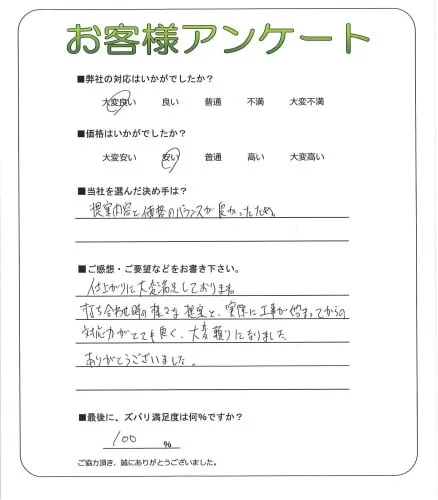 お客様アンケート
■弊社の対応はいかがでしたか?
大変良い 良い 普通 不満 大変不満
■価格はいかがでしたか?
大変安い 安い 普通 高い 大変高い
■当社を選んだ決め手は?
提案内容と価格のバランスが良かったため。
■ご感想・ご要望などをお書き下さい。
仕上がりに大変満足しております。
打ち合わせ時の様々な提案と、実際に工事が始まってからの
対応力がとても良く、大変頼りになりました
ありがとうございました。
■最後に、ズバリ満足度は何%ですか?
100 %
ご協力頂き、誠にありがとうございました。